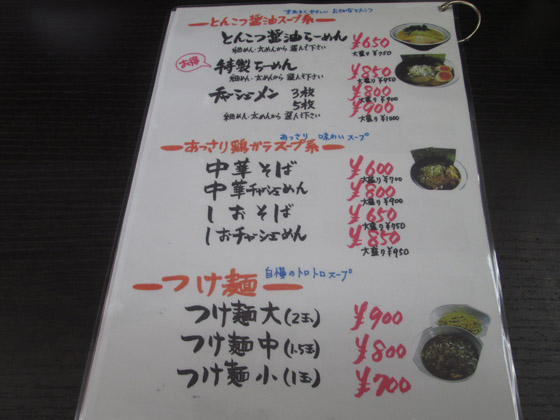 ーとんこつ醤油スープ系ー
とんこつ醤油らーめん ¥650
細めん・太めんから 選んで下さい 大盛り¥750
お得 特製らーめん ¥850
細めん・太めんから 選んで下さい 大盛り¥950
チャーシューメン 3枚 ¥800
大盛り¥900
5枚 ¥900
細めん・太めんから 選んで下さい 大盛り¥1000
あっさり 味わいスープ
ーあっさり鶏ガラスープ系ー
中華そば ¥600
大盛り¥700
中華チャーシューめん ¥800
大盛り¥900
しおそば ¥650
大盛り¥750
しおチャーシューめん ¥850
大盛り¥950
ーつけ麺ー 自慢のトロトロスープ
つけ麺 大(2玉) ¥900
つけ麺 中(1.5玉) ¥800
つけ麺 小(1玉) ¥700